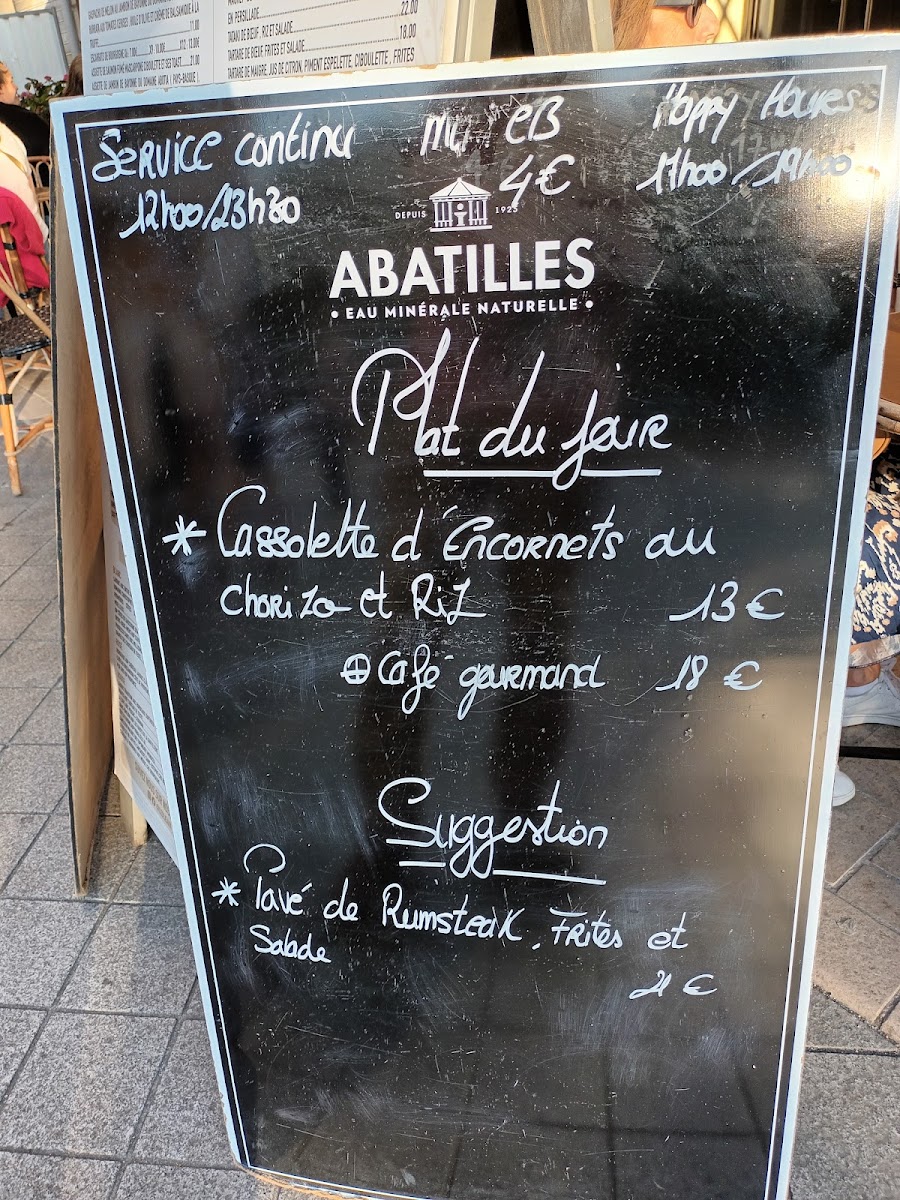 22.00
EN PERSILLADE
TATAKI DE BŒUF, RIZ ET SALADE
18.00
TARTARE DE BŒUF, FRITES ET SALADE
TARTARE DE MAIGRE, JUS DE CITRON, PIMENT ESPELETTE, CIBOULETTE, FRITES
11.00
TRUFFE
Service continu
12h00/23h30
4€
Happy Houres
17h00/19h00
DEPUIS 1925
ABATILLES
• EAU MINÉRALE NATURELLE •
Plat du jour
* Cassolette d'Encornets au
chorizo et Riz 13 €
⊕ Café gourmand 18 €
Suggestion
* Pavé de Rumsteak, Frites et
Salade
21 €